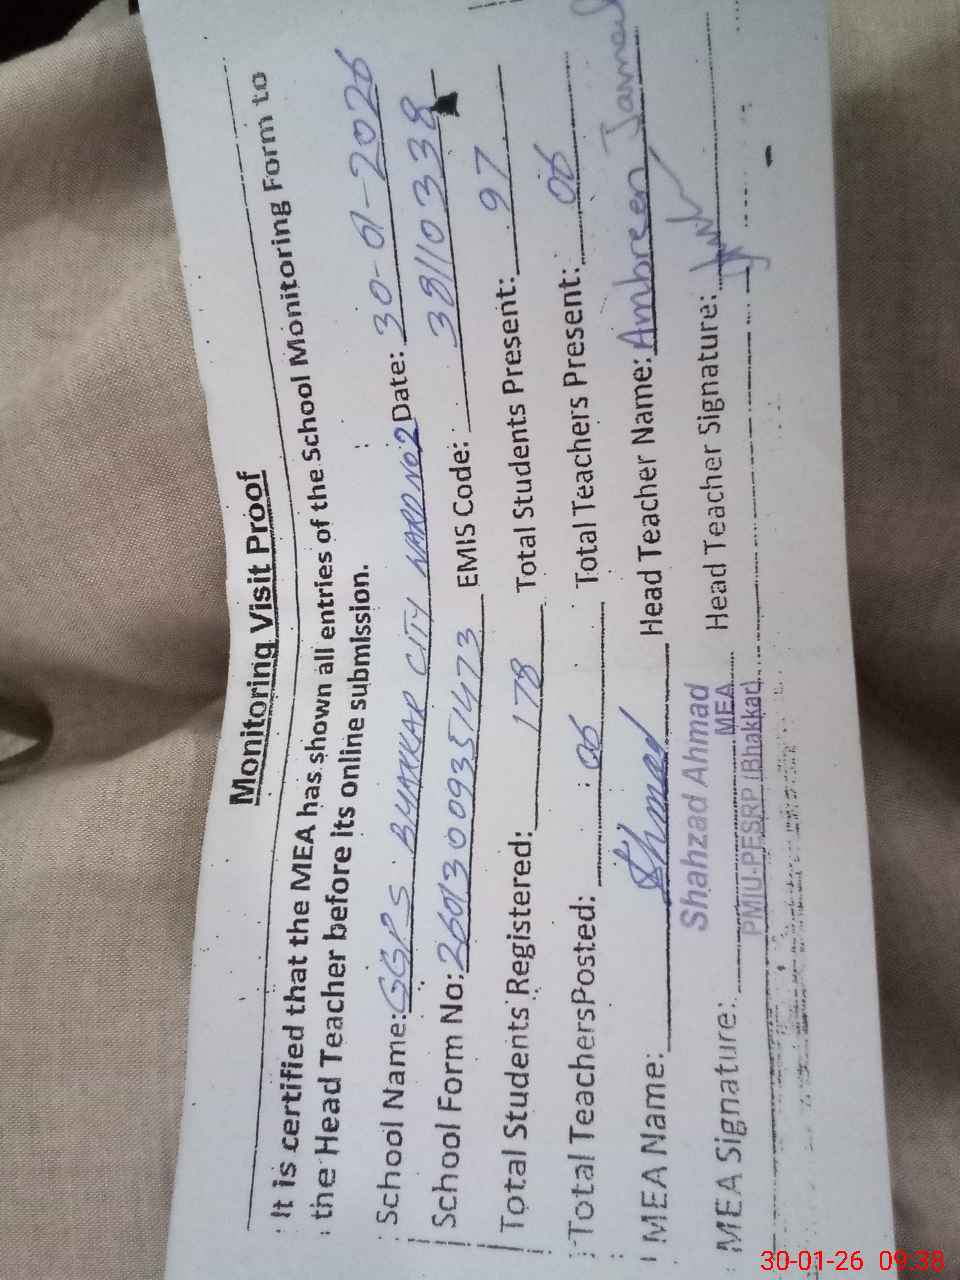 Monitoring Visit Proof
It is certified that the MEA has shown all entries of the School Monitoring Form to
the Head Teacher before its online submission.
School Name: GGPS BHAKKAR CITY WARD NO 2 Date: 30-01-2026
School Form No: 26013009351473 EMIS Code: 38110338
Total Students Registered: 178 Total Students Present: 97
Total TeachersPosted: 06 Total Teachers Present: 06
MEA Name: Ahmed Head Teacher Name: Ambreen Jameel
Shahzad Ahmad
MEA Signature: MEA Head Teacher Signature:
PMIU-PESRP (Bhakkar)
30-01-26 09:38